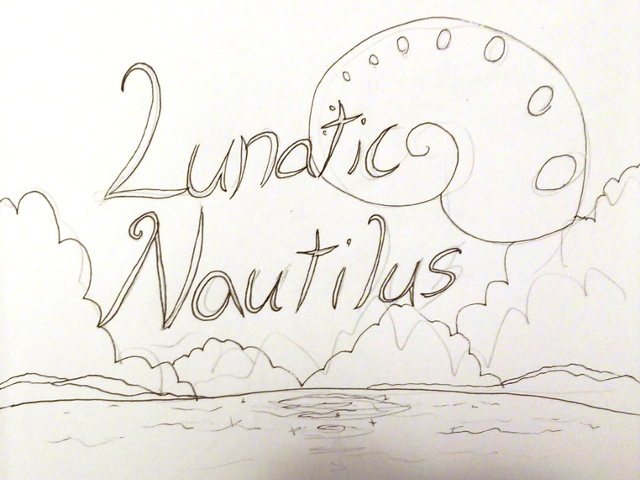 Lunatic
Nautilus